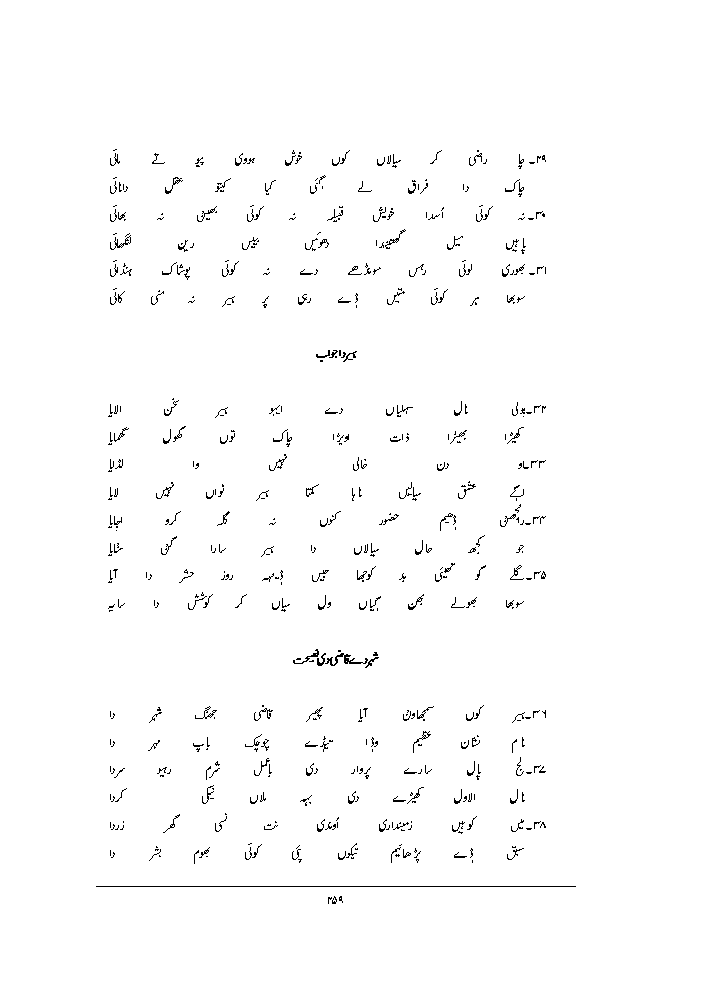 ۲۹۔ چا راضی کر سیالاں کوں خوش ہووی پیو تے مائی
چاک دا فراق لے گئی کیا کیتو عقل دانائی
۳۰۔ نہ کوئی اُسدا خویش قبیلہ نہ کوئی بھینی نہ بھائی
پاہیں میل گھتیندا دھوئیں بیٹس رین لنگھائی
۳۱۔ بھوری لوئی رہس مونڈھے دے نہ کوئی پوشاک ہنڈائی
سوبھا ہر کوئی متیں ڈے رہی پر ہیر نہ منی کائی
ہیر دا جواب
۳۲۔ بولی نال سہلیاں دے ایہو ہیر سخن الایا
کھیڑا بھیڑا ذات اویڑا چاک توں گھول گھمایا
۳۳۔ او دن خالی نہیں وا لڈایا
اگے عشق سیالیں ناہا کتا ہیر نواں نہیں لایا
۳۴۔ رانجھن ڈھیم حضور کنوں نہ گلہ کرو اجایا
جو کجھ حال سیالاں دا ہیر سارا گنی سنایا
۳۵۔ گلے گو تھیئی بد کوجھا جیں ڈیہہ روز حشر دا آیا
سوبھا بھولے بھن گیاں ول سیاں کر کوشش دا سایہ
شہر دے قاضی دی نصیحت
۳۶۔ ہیر کوں سمجھاون آیا پھیر قاضی جھنگ شہر دا
نام نشان عظیم وڈا تیڈے چوچک باپ مہر دا
۳۷۔ لج پال سارے پروار دی باعمل شرم رہیو سردا
نال الاول کھیڑے دی بہہ ملاں نیکی کردا
۳۸۔ میں کو ہیں زمینداری اُوندی نت نسی گھر زردا
سبق ڈے پڑھائیم تیکوں پئی کوئی بھوم بشر دا
۲۵۹